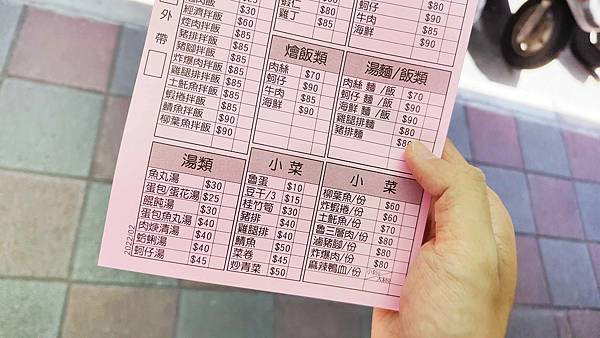 外帶
經濟拌飯 $30
焢肉拌飯 $85
豬排拌飯 $85
豬腳拌飯 $85
炸爆肉拌飯 $85
雞腿排拌飯 $85
土魠魚拌飯 $85
蝦捲拌飯 $90
鯖魚拌飯 $90
柳葉魚拌飯 $90
蝦仁 $80
雞丁 $85
蚵仔 $80
牛肉 $90
海鮮 $90
燴飯類
肉絲 $70
蚵仔 $90
牛肉 $90
海鮮 $90
湯麵/飯類
肉絲 麵 /飯 $70
蚵仔 麵 /飯 $90
海鮮 麵 /飯 $90
雞腿排麵 $80
豬排麵
湯類
魚丸湯 $30
蛋包/蛋花湯 $25
餛飩湯 $30
蛋包魚丸湯 $40
肉燥清湯 $40
蛤蜊湯 $40
蚵仔湯 $45
小菜
魯蛋 $10
豆干/3 $15
桂竹筍 $30
豬排 $40
雞腿排 $40
鯖魚 $50
菜卷 $45
炒青菜 $50
小菜
柳葉魚/份 $60
炸蝦捲/份 $60
土魠魚/份 $70
魯三層肉/份 $80
滷豬腳/份 $80
炸爆肉/份 $80
麻辣鴨血/份 $80
2022/02